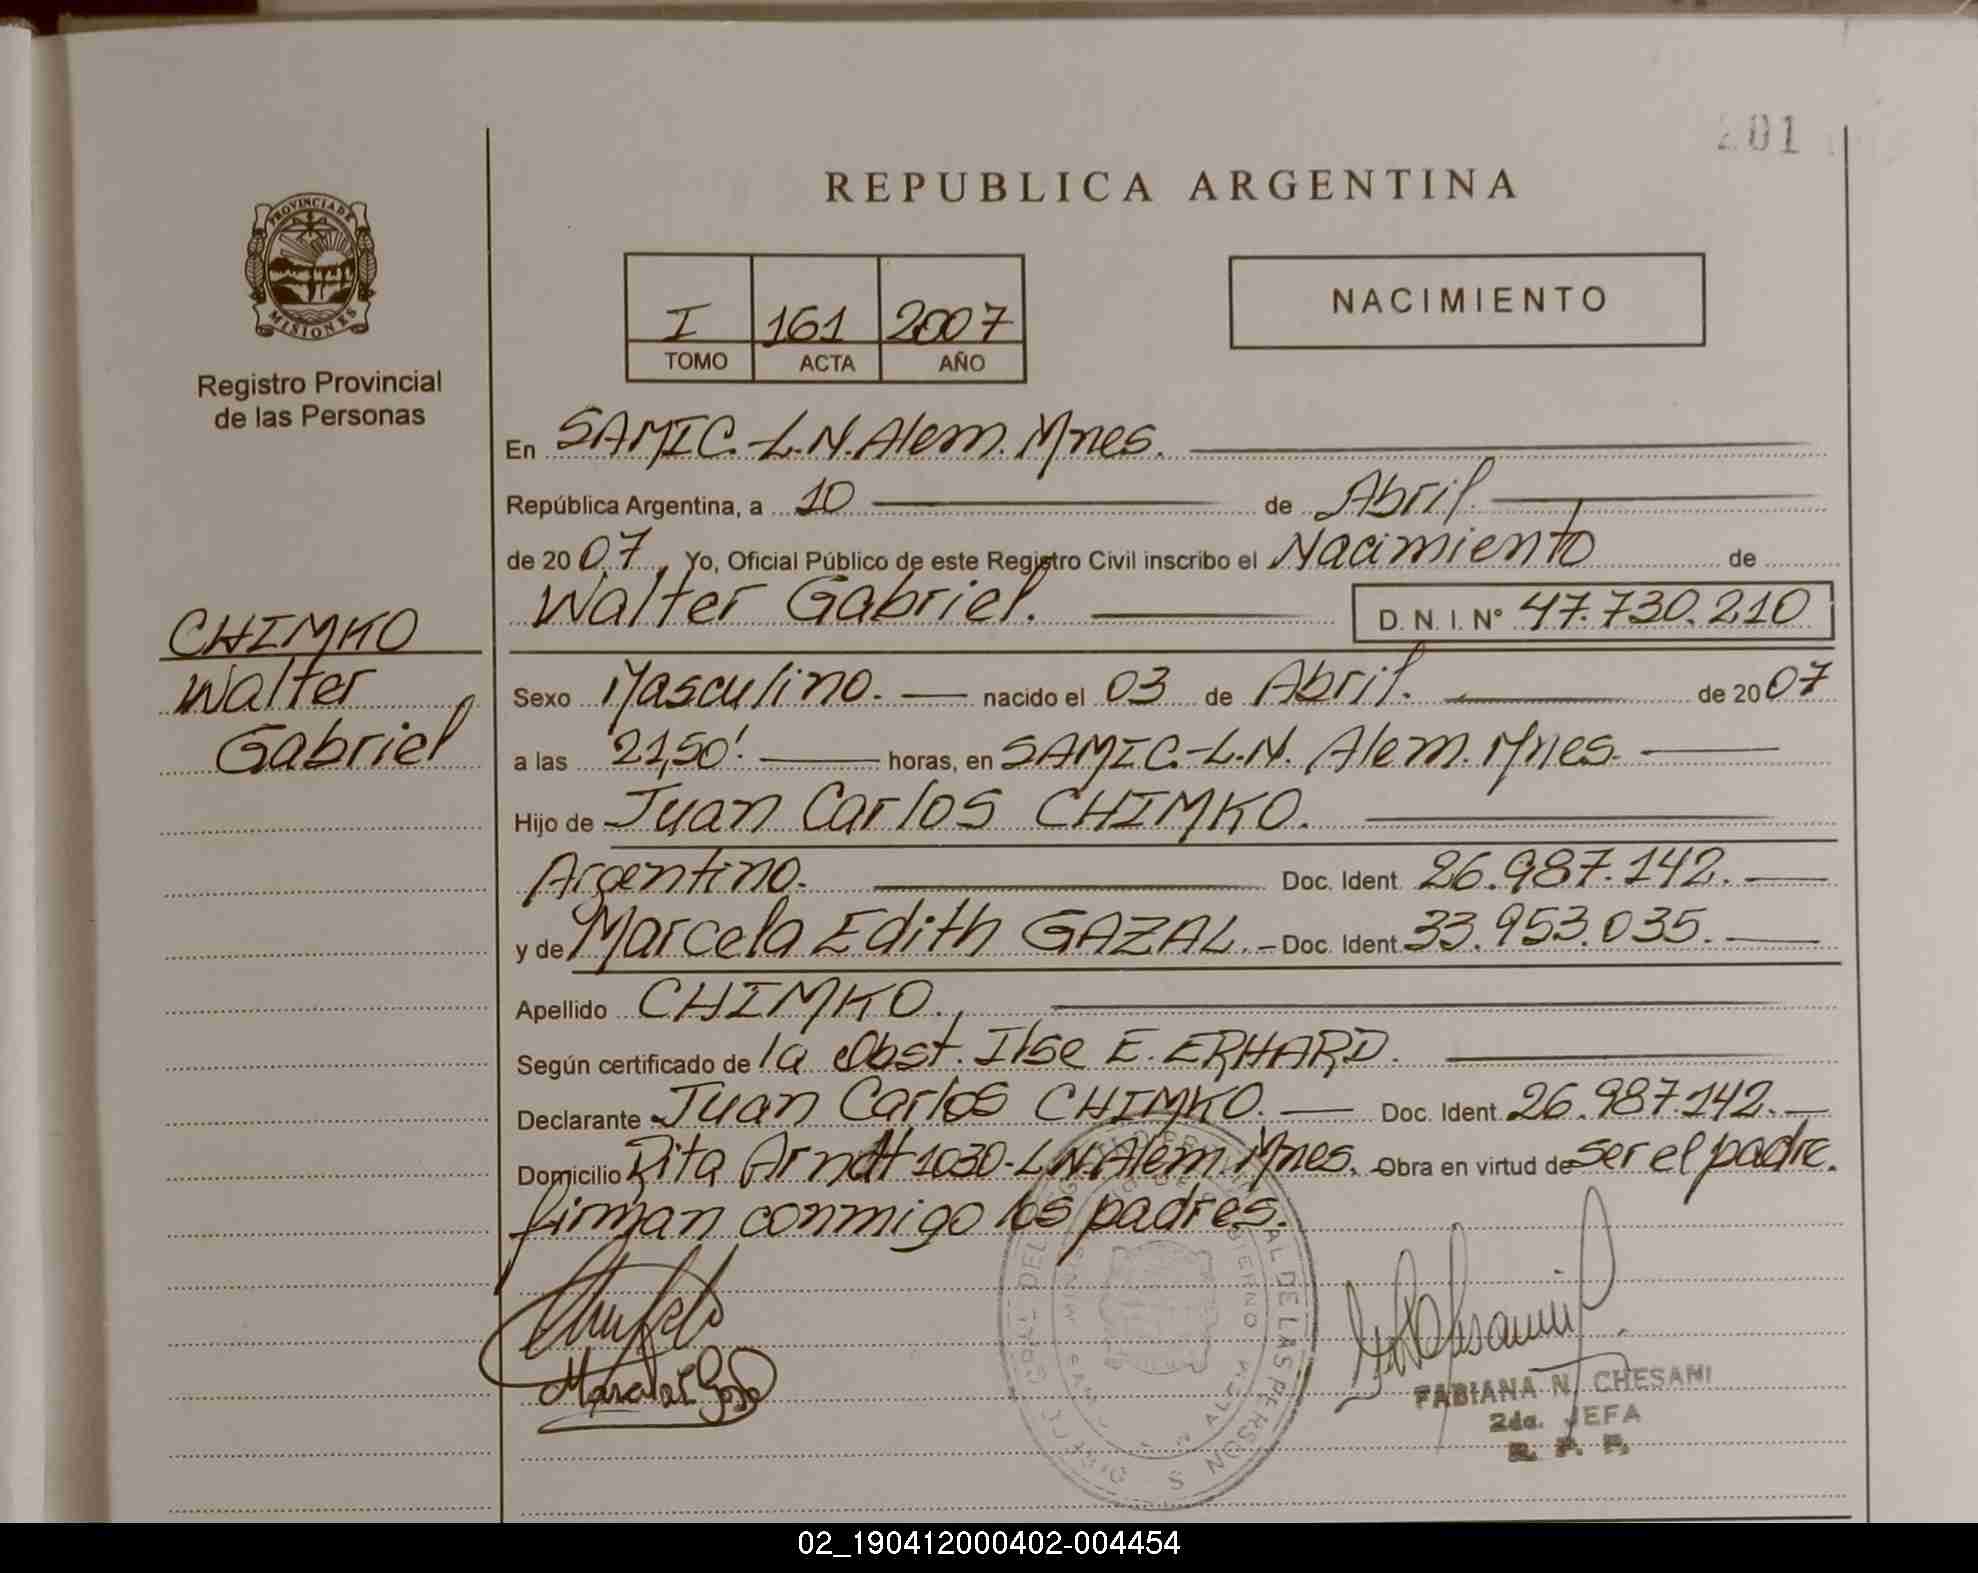 201
REPUBLICA ARGENTINA
PROVINCIA DE
MISIONES
Registro Provincial
de las Personas
I 161 2007
TOMO ACTA AÑO
NACIMIENTO
En SAMIC.-L.N.Alem.Mnes.
República Argentina, a 10 de Abril.
de 20 07. Yo, Oficial Público de este Registro Civil inscribo el Nacimiento de
Walter Gabriel. D. N. I. N° 47.730.210
CHIMKO
Walter
Gabriel
Sexo Masculino. nacido el 03 de Abril. de 20 07
a las 21,50'. horas, en SAMIC.-L.N. Alem. Mnes.
Hijo de Juan Carlos CHIMKO.
Argentino. Doc. Ident. 26.987.142.
y de Marcela Edith GAZAL.- Doc. Ident. 33.953.035.
Apellido CHIMKO.
Según certificado de la Obst. Ilse E. ERHARD.
Declarante Juan Carlos CHIMKO. Doc. Ident. 26.987.142.
Domicilio Rita Arndt 1030-L.N.Alem.Mnes. Obra en virtud de ser el padre.
firman conmigo los padres.
FABIANA N. CHESANI
2da. JEFA
R. P. P.
02_190412000402-004454